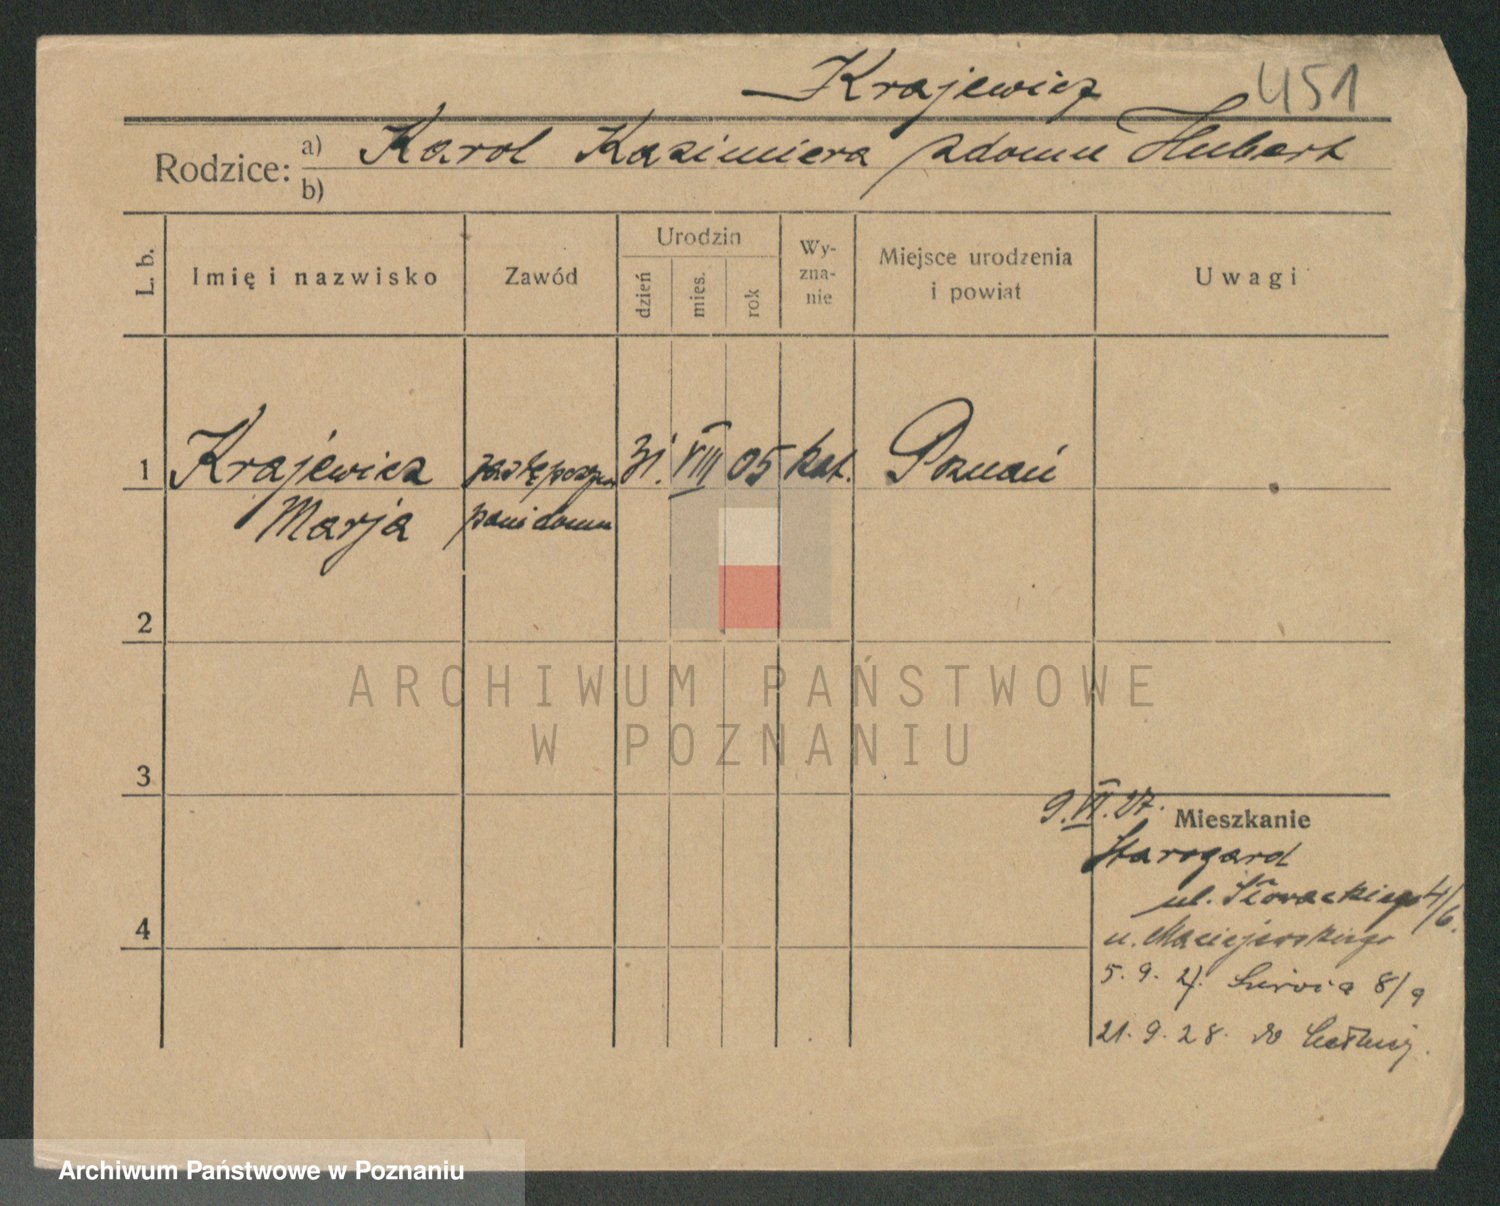 Krajewicz 451
Rodzice: a) Karol Kazimiera z domu Hubert
b)
L. b. Imię i nazwisko Zawód Urodzin dzień mies. rok Wy-zna-nie Miejsce urodzenia i powiat Uwagi
1 Krajewicz 31. VIII 05 kat. Poznań
Marja pani domu
2
ARCHIWUM PAŃSTWOWE
W POZNANIU
3
9. VI. 27. Mieszkanie
Starogard
ul. Słowackiego 4/6.
u. Maciejewskiego
4
5. 9. 27. 8/9
21. 9. 28. do
Archiwum Państwowe w Poznaniu